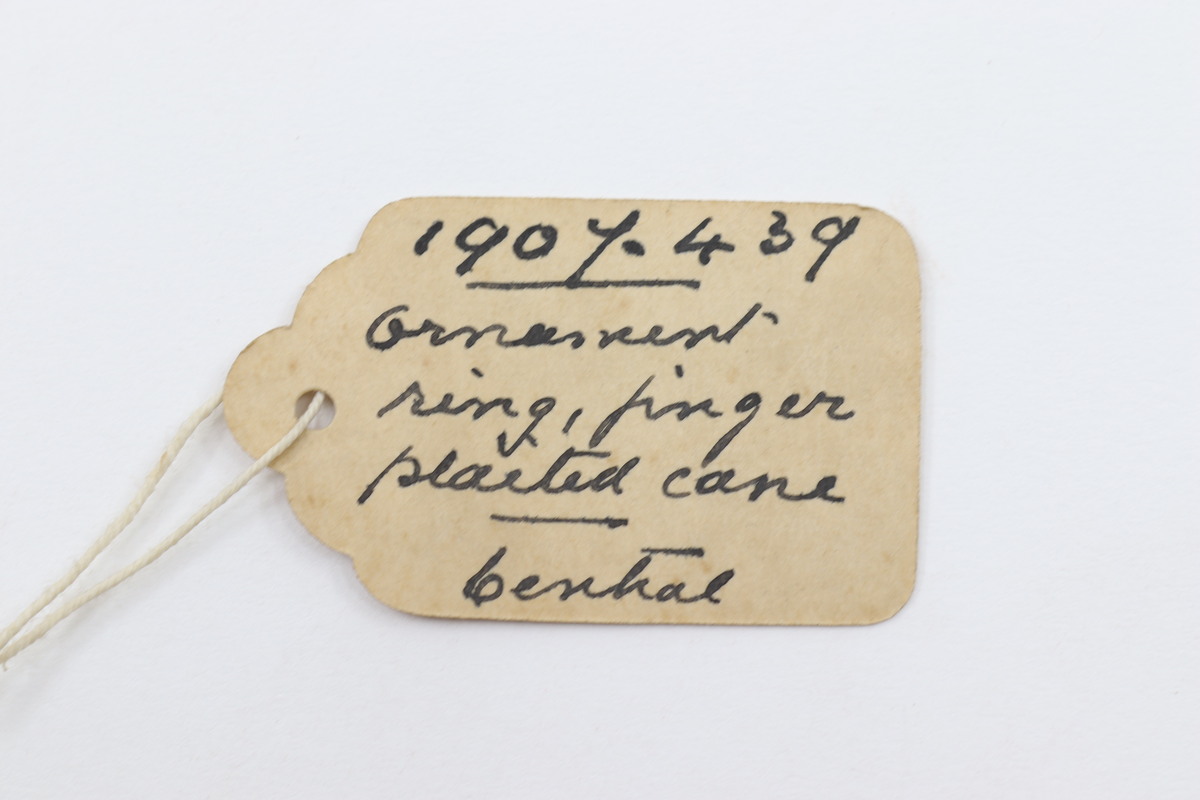 1907. 439
Ornament
ring, finger
plaited cane
Central